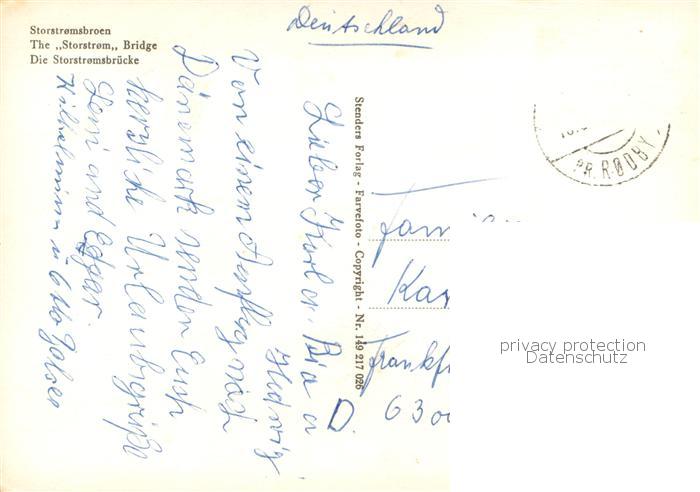 Storstrømsbroen
The „Storstrøm„ Bridge
Die Storstrømsbrücke
Deutschland
Lieber Karl
Hedwig
Von einem Ausflug nach
Dänemark senden Euch
herzliche Urlaubsgrüße
and Edgar.
Wilhelmine u Otto
Stenders Forlag - Farvefoto - Copyright - Nr. 149 217 026
PR. RØDBY
Fam
Ka
Frankf
D. 630
privacy protection
Datenschutz